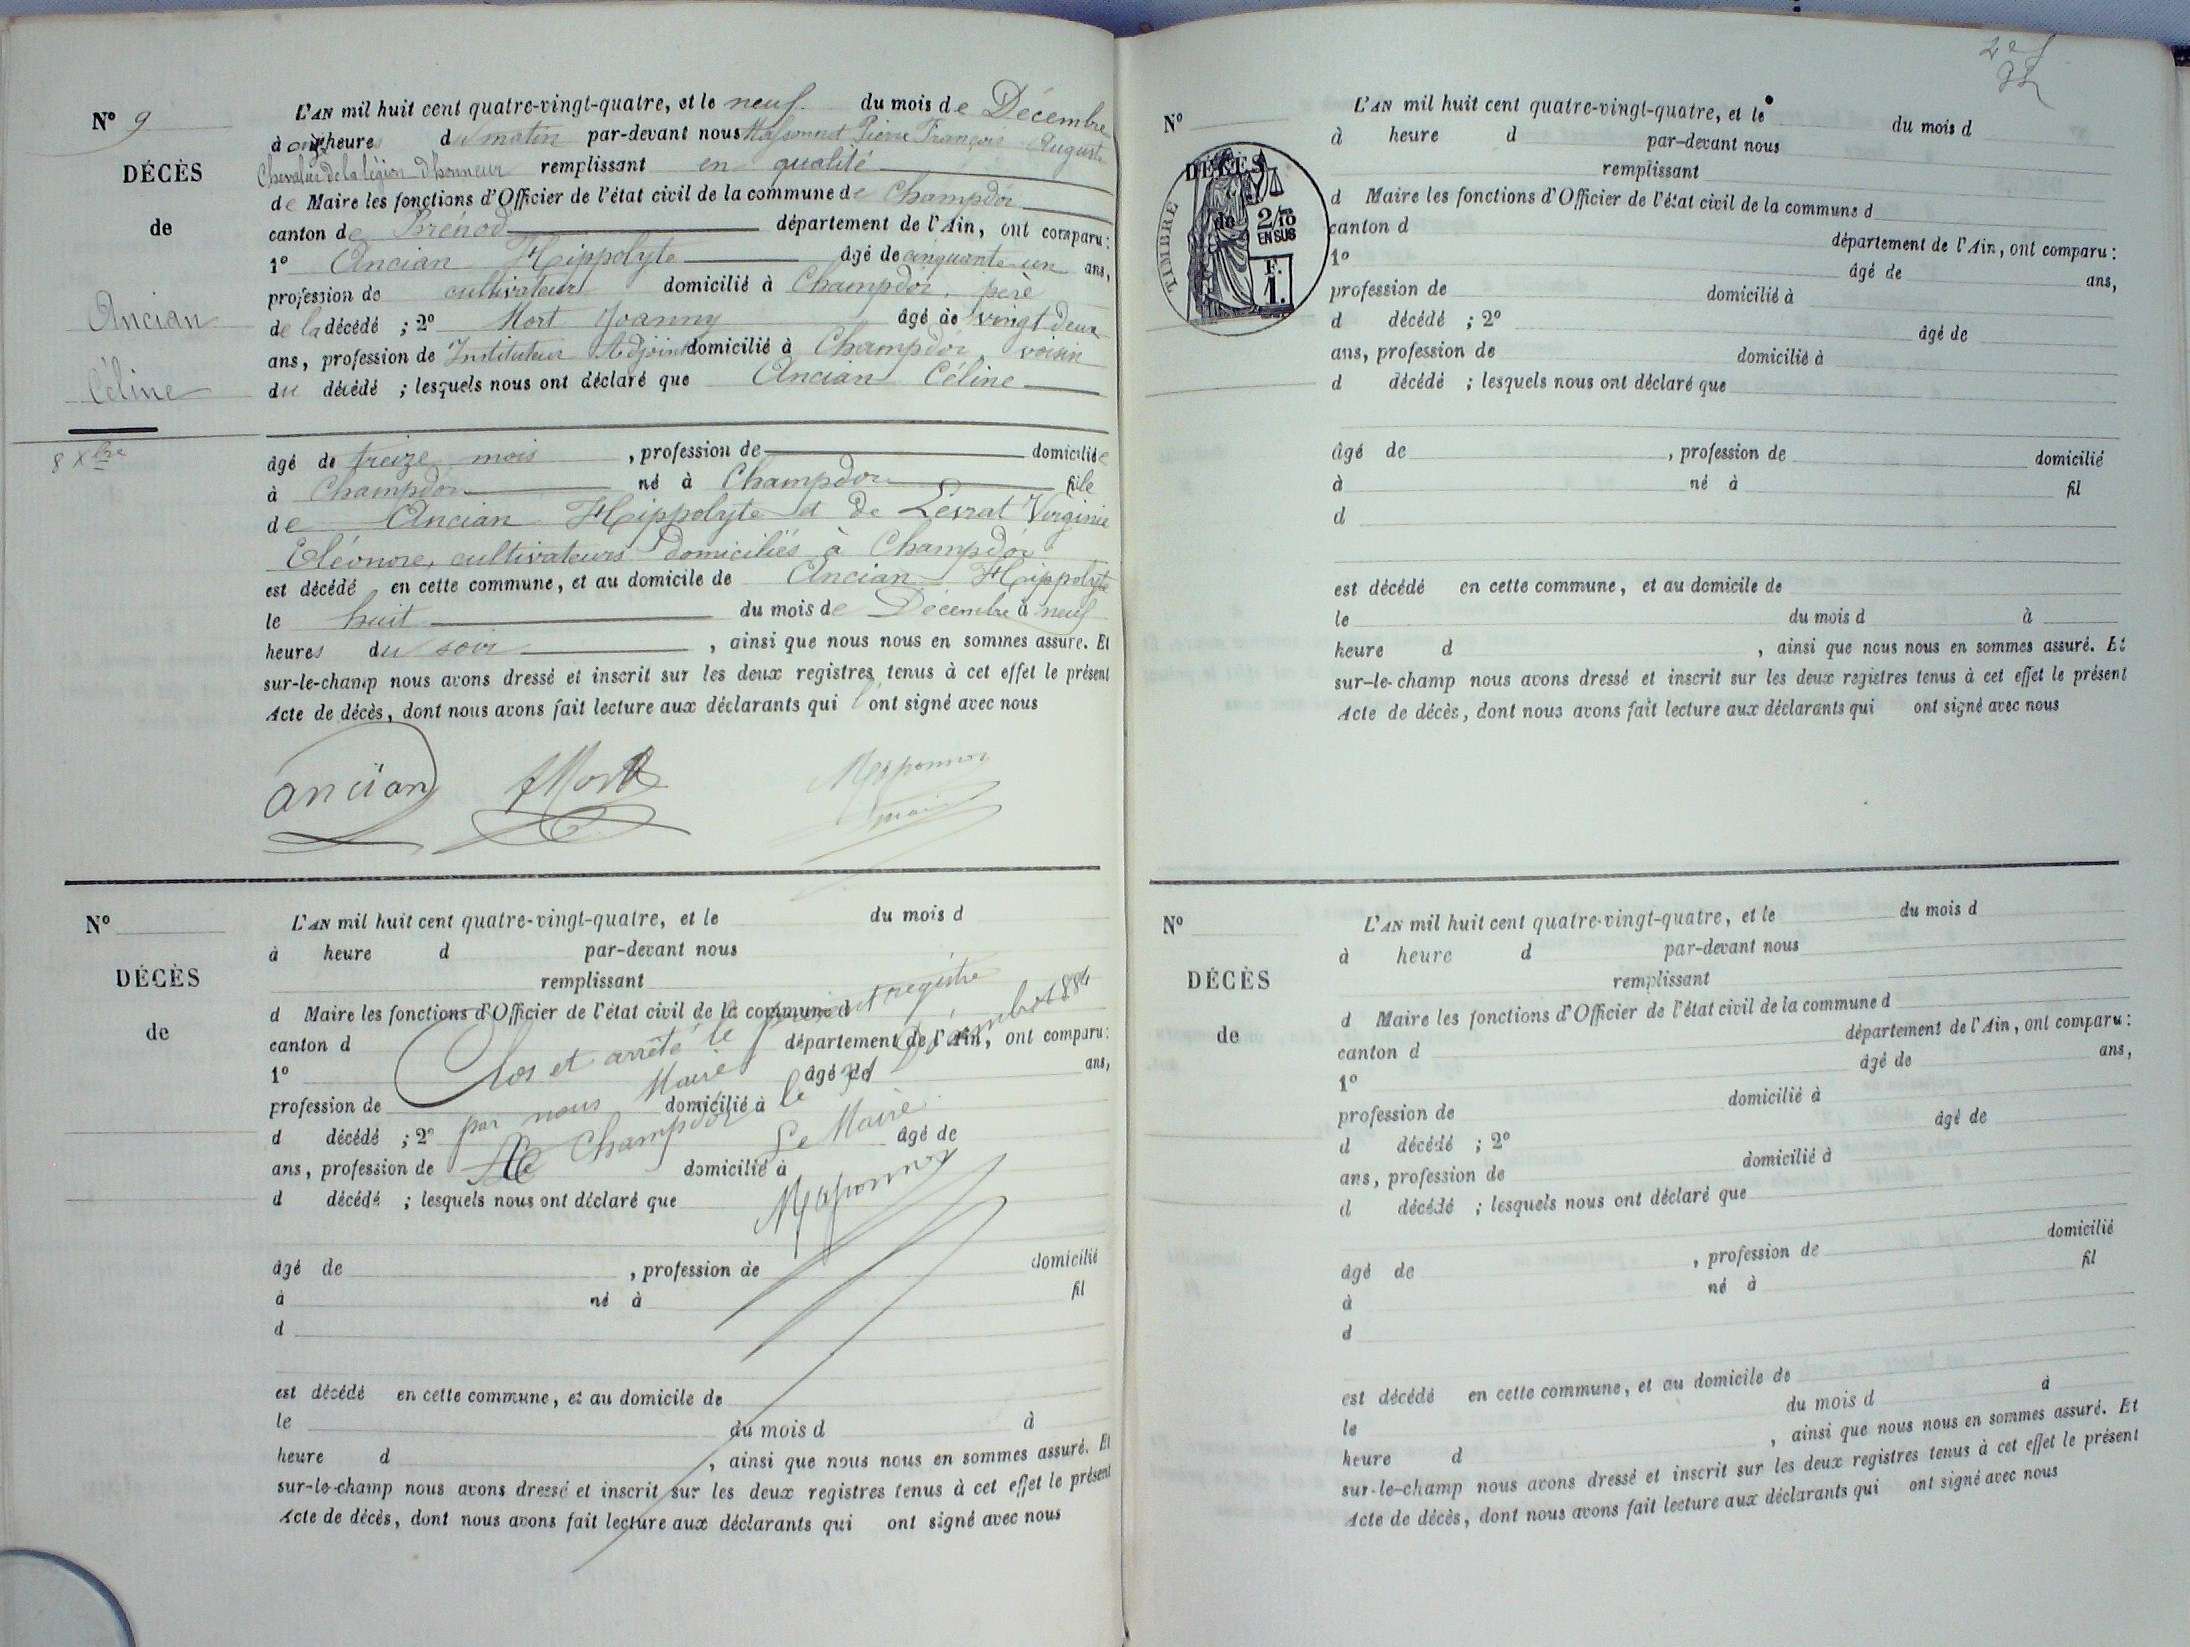 Nº 9
DÉCÈS
de
Ancian
Céline
8 Xbre
L'AN mil huit cent quatre-vingt-quatre, et le neuf du mois de Décembre
à onze heures du matin par-devant nous Massonnet Pierre François Auguste
Chevalier de la légion d'honneur remplissant en qualité
de Maire les fonctions d'Officier de l'état civil de la commune de Champdor
canton de Brénod département de l'Ain, ont comparu:
1º Ancian Hippolyte âgé de cinquante un ans,
profession de cultivateur domicilié à Champdor, père
de la décédé ; 2º Mort Joanny âgé de vingt deux
ans, profession de Instituteur Adjoint domicilié à Champdor, voisin
du décédé ; lesquels nous ont déclaré que Ancian Céline
âgé de treize mois , profession de domiciliée
à Champdor né à Champdor fille
de Ancian Hippolyte et de Levrat Virginie
Eléonore, cultivateurs domiciliés à Champdor
est décédé en cette commune, et au domicile de Ancian Hippolyte
le huit du mois de Décembre à neuf
heures du soir , ainsi que nous nous en sommes assuré. Et
sur-le-champ nous avons dressé et inscrit sur les deux registres tenus à cet effet le présent
Acte de décès, dont nous avons fait lecture aux déclarants qui l'ont signé avec nous
ancian JMort
maire
Nº
DÉCÈS
de
L'AN mil huit cent quatre-vingt-quatre, et le du mois d
à heure d par-devant nous
remplissant
d Maire les fonctions d'Officier de l'état civil de la commune d
canton d département de l'Ain, ont comparu:
1º âgé de ans,
profession de domicilié à
d décédé ; 2º âgé de
ans, profession de domicilié à
d décédé ; lesquels nous ont déclaré que
Clos et arrêté le présent registre
par nous Maire
Champdor le 31 Décembre 1884
Le Maire
âgé de , profession de domicilié
à né à fil
d
est décédé en cette commune, et au domicile de
le du mois d à
heure d , ainsi que nous nous en sommes assuré. Et
sur-le-champ nous avons dressé et inscrit sur les deux registres tenus à cet effet le présent
Acte de décès, dont nous avons fait lecture aux déclarants qui ont signé avec nous
Nº
DÉCÈS
de
TIMBRE
2/10
EN SUS
F.
1.
L'AN mil huit cent quatre-vingt-quatre, et le du mois d
à heure d par-devant nous
remplissant
d Maire les fonctions d'Officier de l'état civil de la commune d
canton d département de l'Ain, ont comparu:
1º âgé de ans,
profession de domicilié à
d décédé ; 2º âgé de
ans, profession de domicilié à
d décédé ; lesquels nous ont déclaré que
âgé de , profession de domicilié
à né à fil
d
est décédé en cette commune, et au domicile de
le du mois d à
heure d , ainsi que nous nous en sommes assuré. Et
sur-le-champ nous avons dressé et inscrit sur les deux registres tenus à cet effet le présent
Acte de décès, dont nous avons fait lecture aux déclarants qui ont signé avec nous
Nº
DÉCÈS
de
L'AN mil huit cent quatre-vingt-quatre, et le du mois d
à heure d par-devant nous
remplissant
d Maire les fonctions d'Officier de l'état civil de la commune d
canton d département de l'Ain, ont comparu:
1º âgé de ans,
profession de domicilié à
d décédé ; 2º âgé de
ans, profession de domicilié à
d décédé ; lesquels nous ont déclaré que
âgé de , profession de domicilié
à né à fil
d
est décédé en cette commune, et au domicile de
le du mois d à
heure d , ainsi que nous nous en sommes assuré. Et
sur-le-champ nous avons dressé et inscrit sur les deux registres tenus à cet effet le présent
Acte de décès, dont nous avons fait lecture aux déclarants qui ont signé avec nous